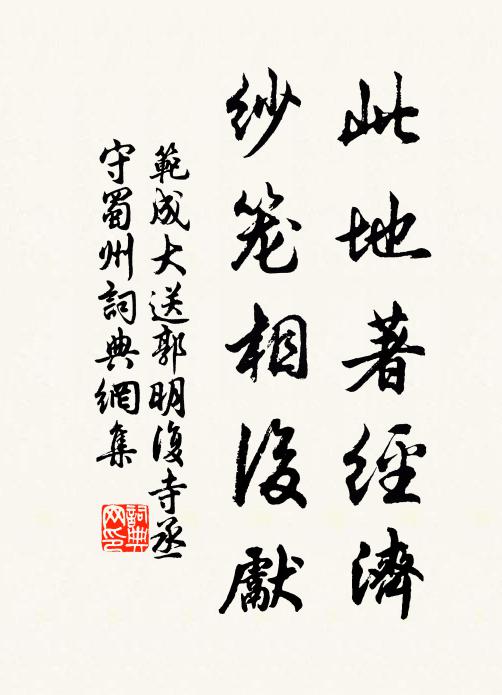 此地著經濟
紗笼相後獻
範成大送郭明復寺丞
守蜀州詞典網集
詞典网印